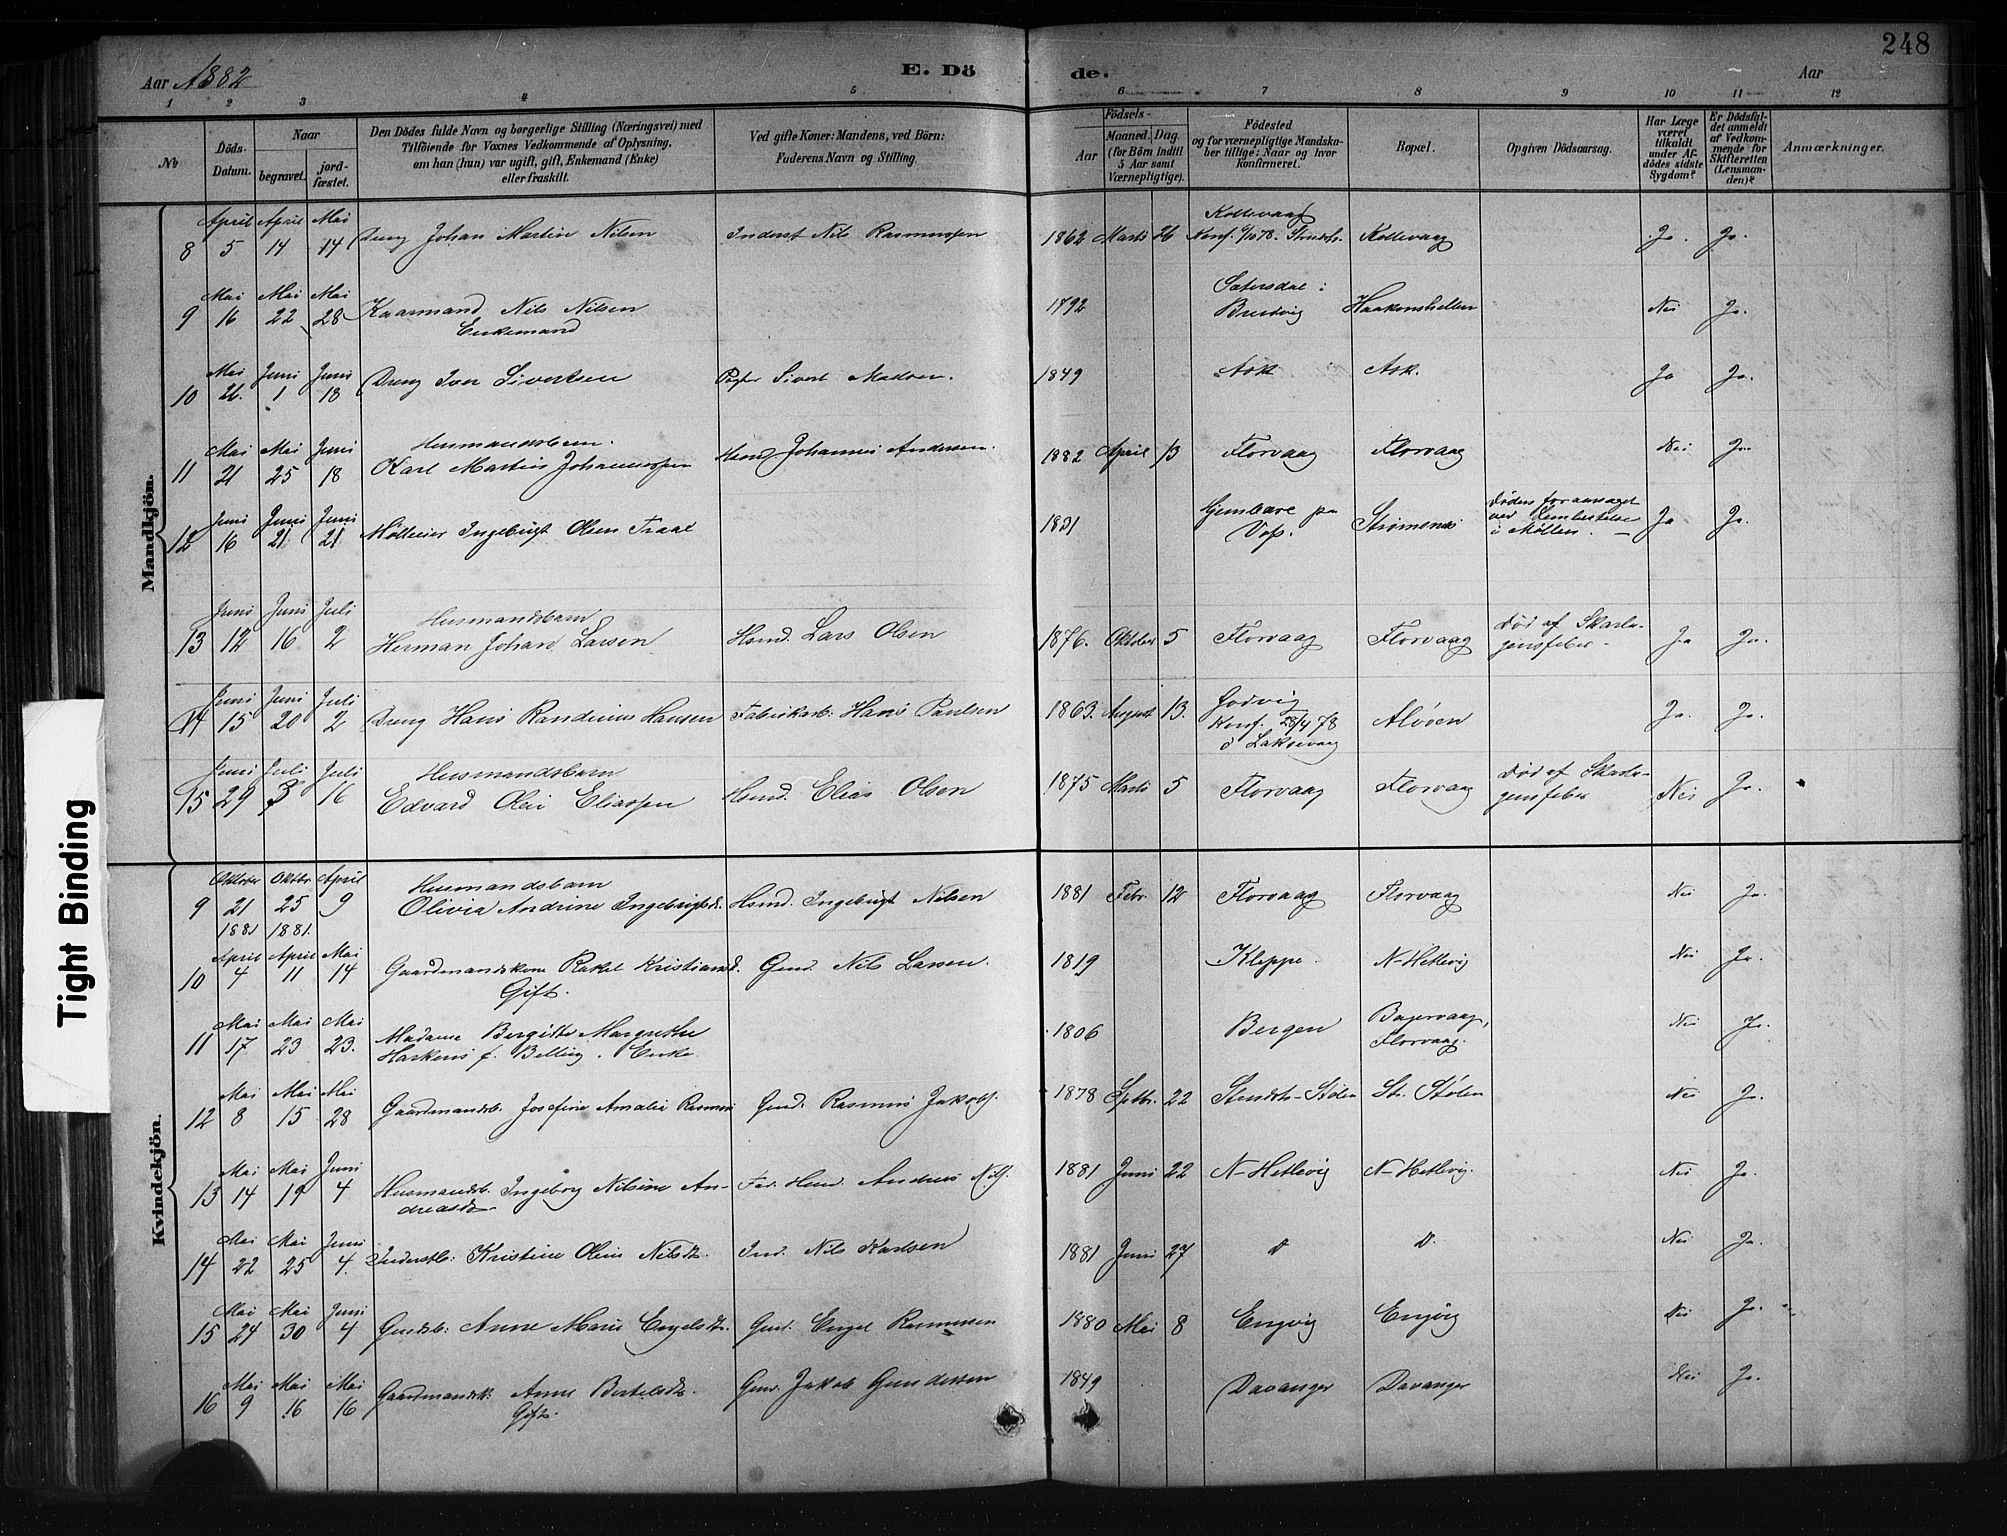 248
Aar 1882
E. Dö
de.
Aar
1 2 3 4 5 6 7 8 9 10 11 12
No
Döds-Datum.
Naar
begravet.
jordfæstet.
Den Dödes fulde Navn og borgerlige Stilling (Næringsvei) med
Tilföiende for Voxnes Vedkommende af Oplysning,
om han (hun) var ugift, gift, Enkemand (Enke)
eller fraskilt.
Ved gifte Koner: Mandens, ved Börn:
Faderens Navn og Stilling.
Födsels-
Aar
Maaned. Dag.
(for Börn indtil
5 Aar samt
Værnepligtige).
Födested
og for værnepligtige Mandska-
ber tillige: Naar og hvor
konfirmeret.
Bopæl.
Opgiven Dödsaarsag.
Har Læge
været
tilkaldt
under Af-
dödes sidste
Sygdom?
Er Dödsfal-
det anmeldt
af Vedkom-
mende for
Skifteretten
(Lensman-
den)?
Anmærkninger.
Mandkjön.
8 April 5 April 14 Mai 14 Dreng Johan Martin Nilsen Inderst Nils Rasmussen 1862 Marts 26 Kollevaag Kollevaag Ja. Ja.
9 Mai 16 Mai 22 Mai 28 Kaarmand Nils Nilsen 1792 Sætersdal: Haakonshellen Nei Ja.
Enkemand Bredvig
10 Mai 26. Juni 1 Juni 18 Dreng Iver Sivertsen Sivert Madsen. 1849 Ask Ask. Ja Ja.
11 Mai 21 Mai 25 Juni 18 Husmandsbarn.
Karl Martin Johannessen Hsmd. Johannes Andersen. 1882 April 13 Florvaag Florvaag Nei Ja
12 Juni 16 Juni 21 Juni 21 Mölleier Ingebrigt Olsen Traae 1831 Gjembare paa Voss. Strömsnes Döden foraarsaget
ved Lemlæstelse
i Möllen. Ja Ja.
13 Juni 12 Juni 16 Juli 2 Husmandsbarn
Herman Johan Larsen Hsmd. Lars Olsen 1876. Oktober 5 Florvaag Florvaag Död af Skarla-
gensfeber. Ja Ja.
14 Juni 15 Juni 20 Juli 2 Dreng Hans Randinius Hansen Fabrikarb: Hans Paulsen 1863. August 13. Godvig
Konf. 28/4 78
i Laksevaag Alöen Ja. Ja.
15 Juni 29 Juli 3 Juli 16 Husmandsbarn
Edvard Olai Eliassen Hsmd. Elias Olsen 1875 Marts 5 Florvaag Florvaag Död af Skarla-
gensfeber Nei Ja.
Kvindekjön.
9 Oktober 21 1881 Oktbr 25 1881. April 9 Husmandsbarn
Olivia Andrine Ingebrigtsd. Hsmd. Ingebrigt Nilsen 1881 Febr. 12 Florvaag Florvaag Nei Ja.
10 April 4 April 11 Mai 14 Gaardmandskone Rakel Kristiansd. Gmd. Nils Larsen. 1819 Kleppe. N-Hetlevig Nei Ja.
Gift.
11 Mai 17 Mai 23 Mai 23. Madame Birgitte Margrethe 1806 Bergen Florvaag. Nei Ja.
f. Enke.
12 Mai 8 Mai 15 Mai 28 Gaardmandsb. Josefine Amalie Gmd. Rasmus Jakobs. 1878 Septbr. 22 Strudsh-Stölen Str. Stölen Nei Ja.
13 Mai 14 Mai 19 Juni 4 Husmandsb. Ingeborg Nilsine An-
dreasdr. Andreas Nils. 1881 Juni 22 N-Hetlevig N-Hetlevig. Nei Ja.
14 Mai 22 Mai 25 Juni 4. Inderstb: Kristine Oline Nilsdr. Ind. Nils Karlsen 1881 Juni 27 Do Do. Nei Ja.
15 Mai 24 Mai 30 Juni 4 Gmdsb: Anne Marie Engelsdtr. Gmd. Engel Rasmussen 1880 Mai 8 Engvig Engvig Nei Ja.
16 Mai 9 Mai 16 Mai 16 Gaardmandsk. Anne Bertelsdtr. Gmd. Jakob Gundersen 1849 Davanger Davanger Nei Ja.
Gift.
Tight Binding